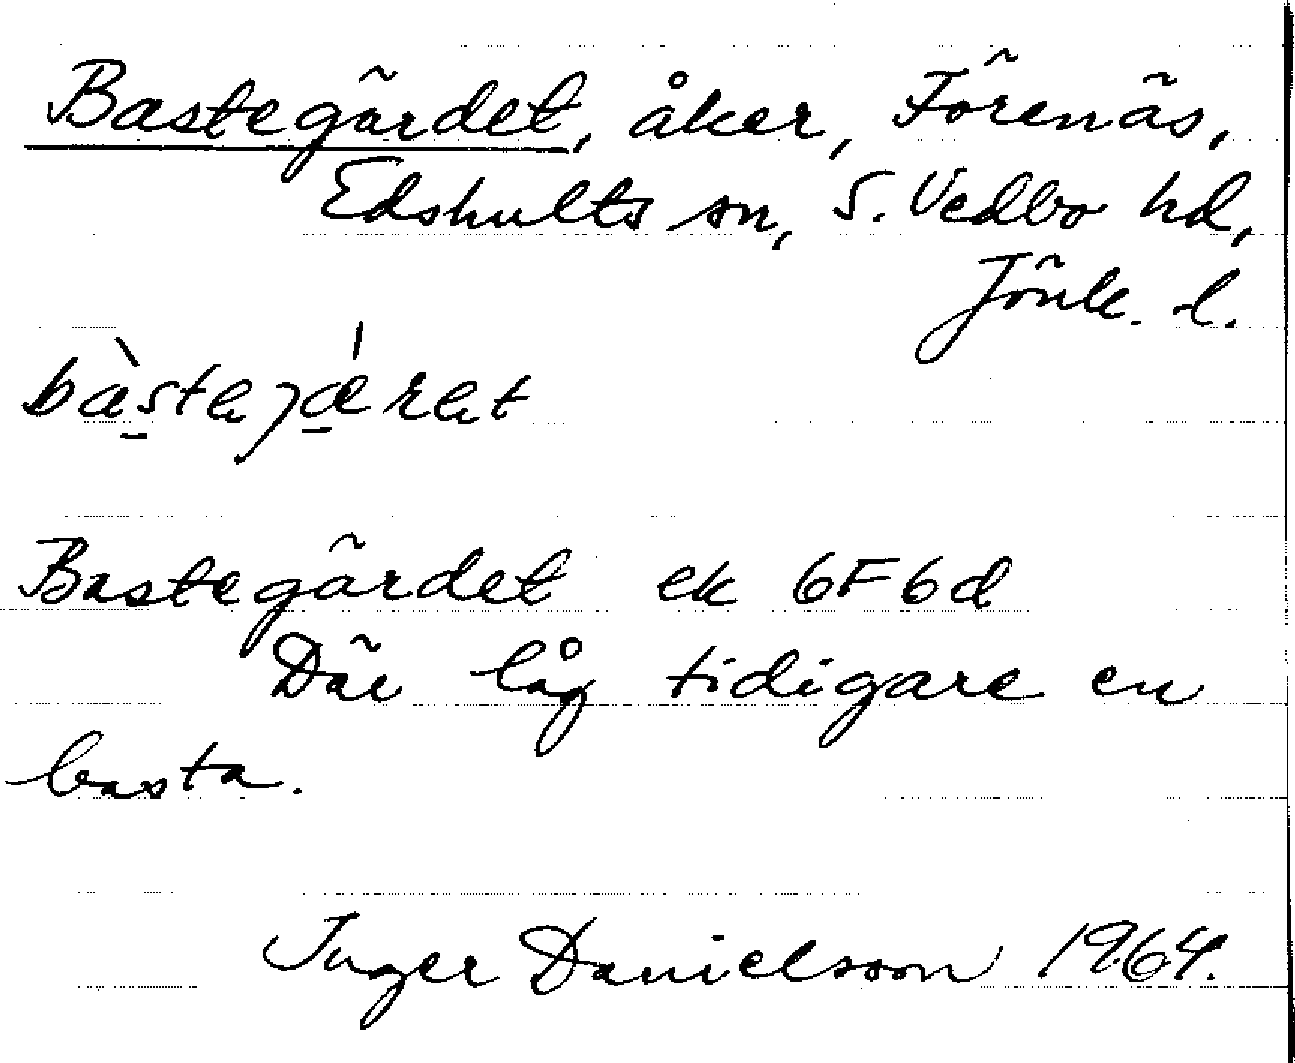 Bastegärdet, åker, Förenäs,
Edshults sn, S. Vedbo hd,
Jönk. l.
bàstejæ̍ret
Bastegärdet ek 6F6d
Där låg tidigare en
basta.
Inger Danielsson 1964.